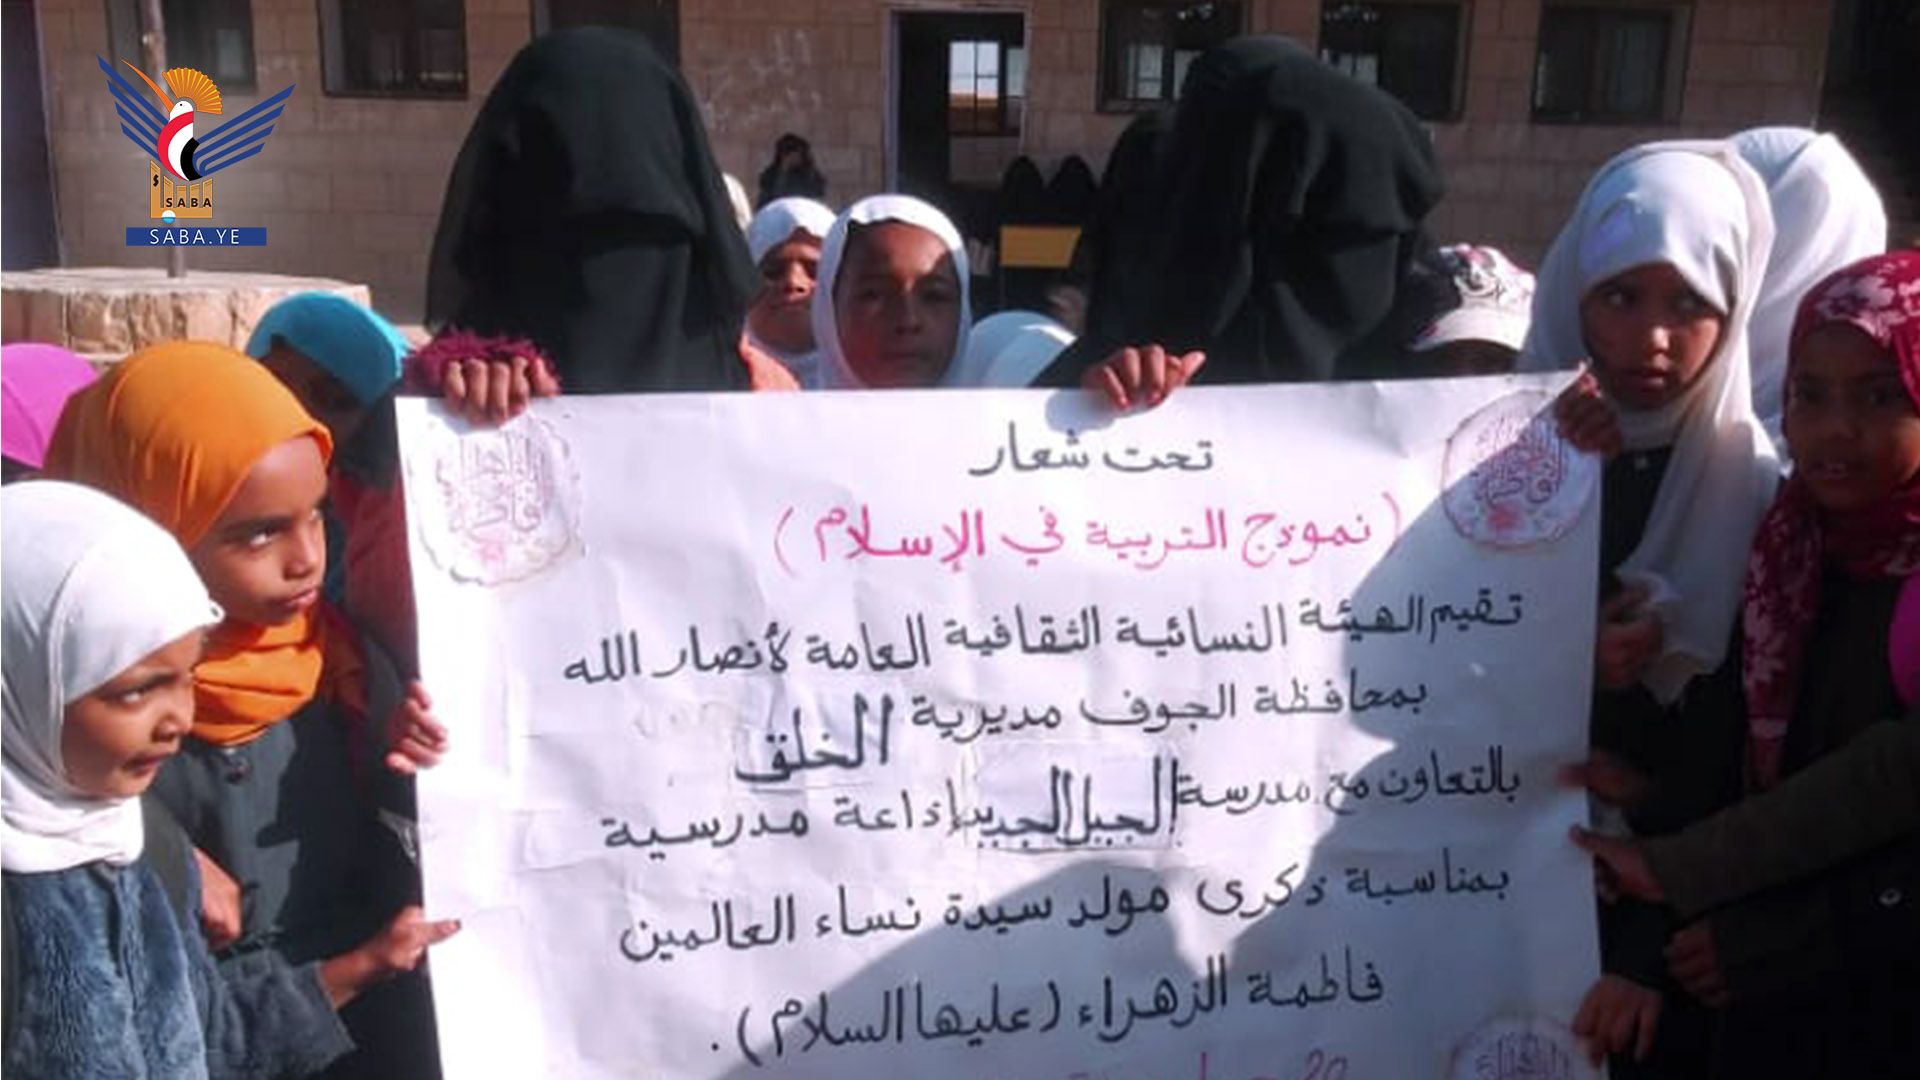 SABA
SABA.YE
تحت شعار
( نموذج التربية في الإسلام )
تقيم الهيئة النسائية الثقافية العامة لأنصار الله
بمحافظة الجوف مديرية الخلق
بالتعاون مع مدرسة الجيل الجديد إذاعة مدرسية
بمناسبة ذكرى مولد سيدة نساء العالمين
فاطمة الزهراء (عليها السلام) .